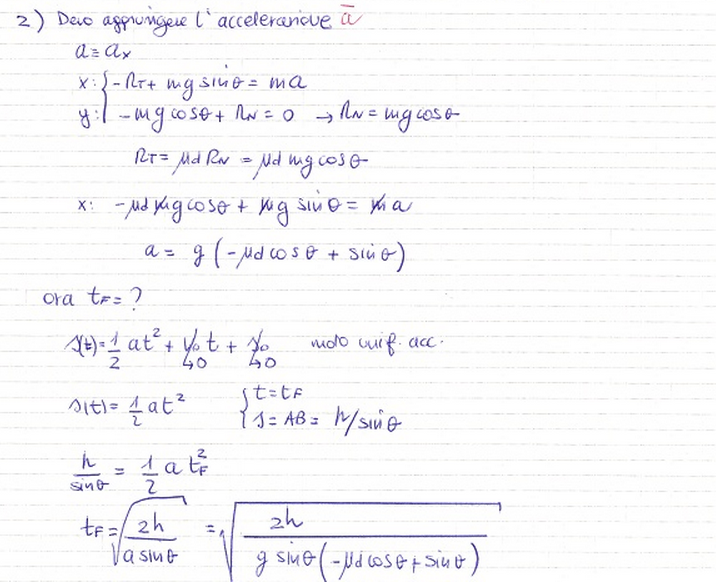 2) Devo aggiungere l'accelerazione a̅
a = aₓ
x: { -R_T + mg sinθ = ma
y: { -mg cosθ + R_N = 0 → R_N = mg cosθ
R_T = μd R_N = μd mg cosθ
x: -μd mg cosθ + mg sinθ = ma
a = g (-μd cosθ + sinθ)
ora t_F = ?
s(t) = 1/2 at² + v₀t + s₀ moto unif. acc.
↳0 ↳0
s(t) = 1/2 at² { t = t_F
s = AB = h/sinθ
h/sinθ = 1/2 a t_F²
t_F = √(2h/(a sinθ)) = √(2h/(g sinθ(-μd cosθ + sinθ)))